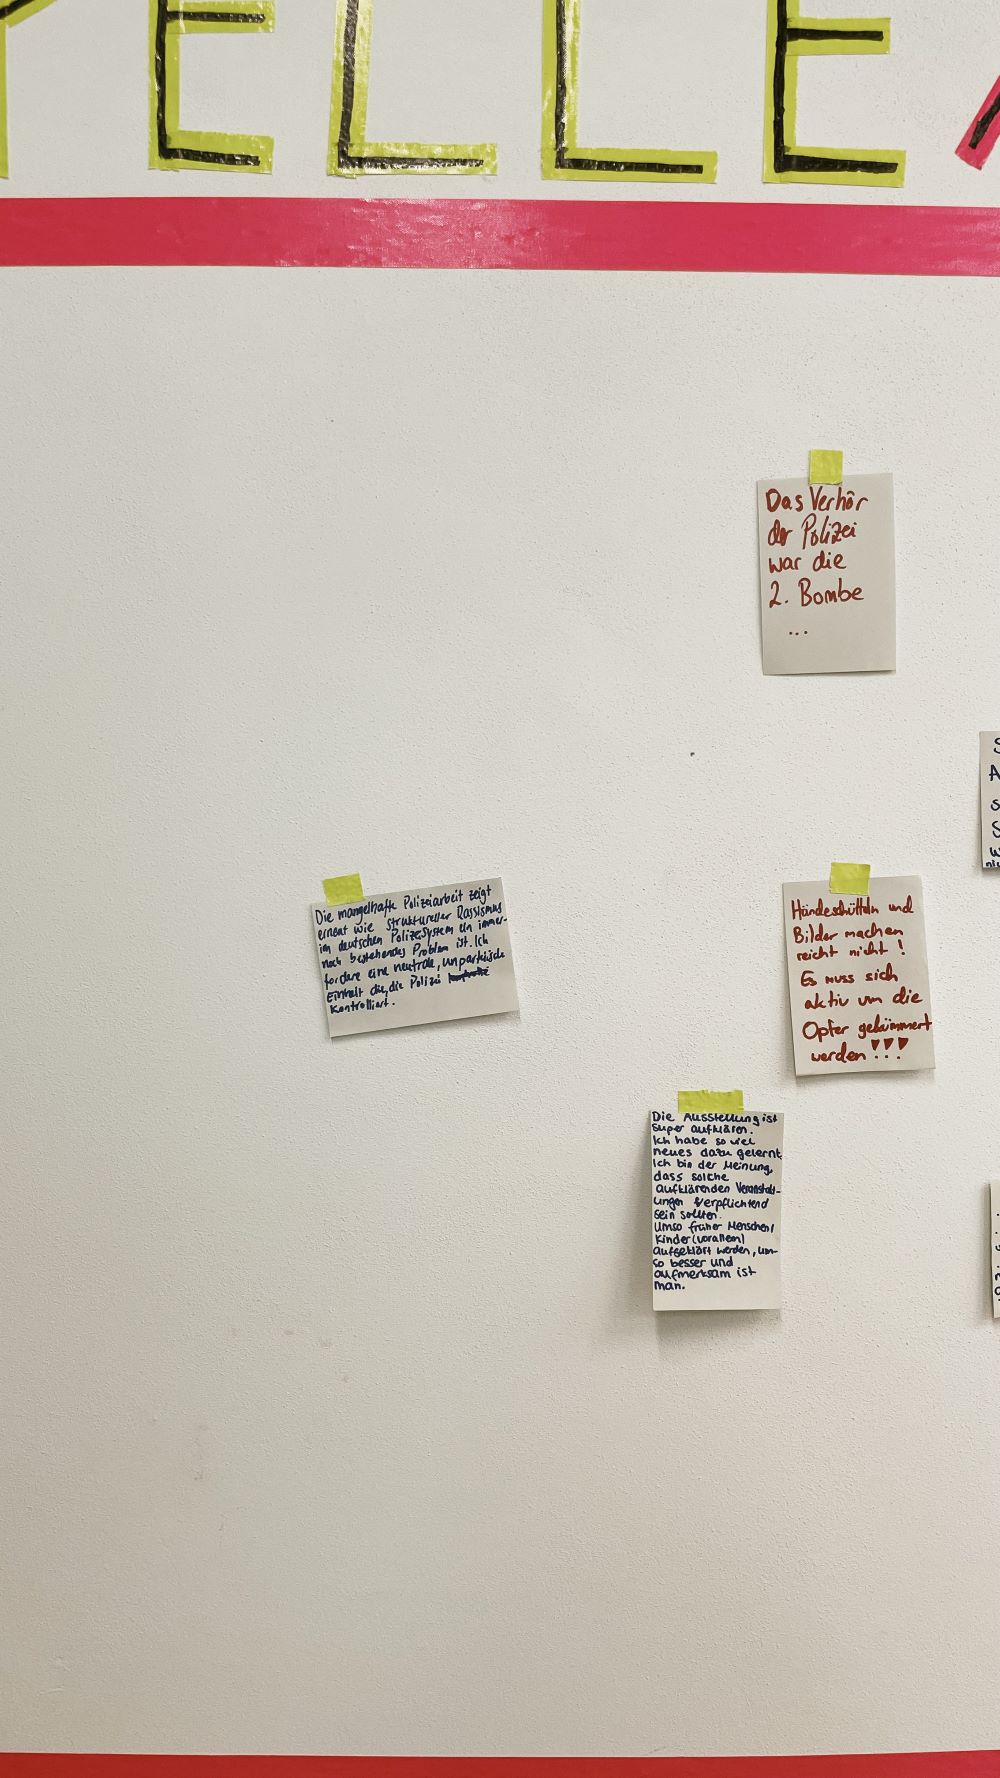 ELLE
Das Verhör
der Polizei
war die
2. Bombe
...
Die mangelhafte Polizeiarbeit zeigt
erneut wie struktureller Rassismus
im deutschen Polizeisystem ein immer-
noch bestehendes Problem ist. Ich
fordere eine neutrale, unparteiische
Einheit die, die Polizei
kontrolliert.
Händeschütteln und
Bilder machen
reicht nicht!
Es muss sich
aktiv um die
Opfer gekümmert
werden!!!
Die Ausstellung ist
super aufklären.
Ich habe so viel
neues dazu gelernt.
Ich bin der Meinung,
dass solche
aufklärenden Veranstalt-
ungen verpflichtend
sein sollten.
Umso früher Menschen/
Kinder (vorallem)
aufgeklärt werden, um-
so besser und
aufmerksam ist
man.